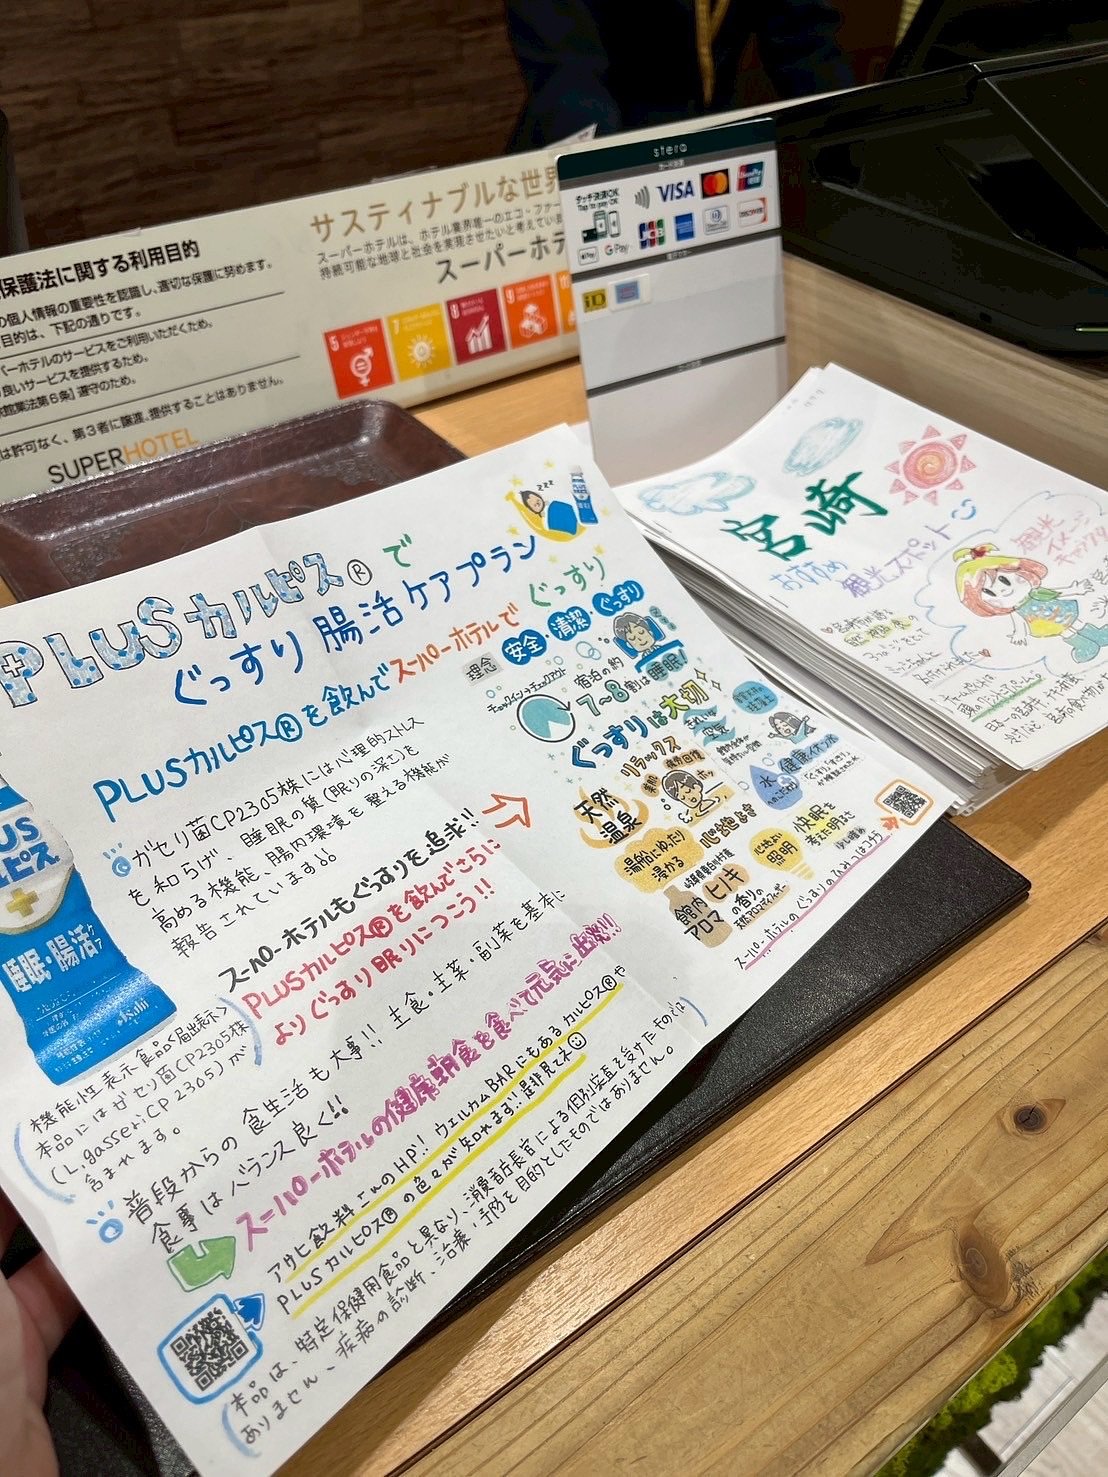 保護法に関する利用目的
の個人情報の重要性を認識し、適切な保護に努めます。
目的は、下記の通りです。
パーホテルのサービスをご利用いただくため。
良いサービスを提供するため。
館業法第6条】遵守のため。
は許可なく、第3者に譲渡、提供することはありません。
SUPERHOTEL
サスティナブルな世界
スーパーホテルは、ホテル業界唯一のエコ・ファー
持続可能な地球と社会を実現させたいと考えてい
スーパーホテ
5
7
8
9
stera
タッチ決済OK
Tap to pay OK
VISA
JCB
G Pay
DISCOVER
iD
PLUSカルピス®で
ぐっすり腸活ケアプラン
PLUSカルピス®を飲んでスーパーホテルでぐっすり
ガセリ菌CP2305株には心理的ストレス
を和らげ、睡眠の質(眠りの深さ)を
高める機能、腸内環境を整える機能が
報告されています。
スーパーホテルもぐっすりを追求!!
PLUSカルピス®を飲んでさらに
よりぐっすり眠りにつこう!!
睡眠・腸活ケア
Asahi
機能性表示食品<届出表示>
本品にはガセリ菌CP2305株
(L.gasseri CP2305)が
含まれます。
普段からの食生活も大事!! 主食・主菜・副菜を基本に
食事はバランス良く!!
スーパーホテルの健康朝食を食べて元気に出発!!!
アサヒ飲料このHP!! ウェルカムBARにもあるカルピス®や
PLUSカルピス®の色々が知れます!!是非見てネ
本品は、特定保健用食品と異なり、消費者庁長官による個別審査を受けたものでは
ありません。疾病の診断、治療、予防を目的としたものではありません。
理念
安全・清潔・ぐっすり
チェックイン→チェックアウト
宿泊の約
7~8割は睡眠!
ぐっすりは大切
天然
温泉
リラックス
湯船にゆったり
浸かる
心地良さ
空気
水
健康イオン水
館内
アロマ
ヒノキ
の香りの
心地よい
照明
快眠を
考えた明るさ
スーパーホテルのぐっすりのひみつはコチラ
宮崎
おすすめ
観光スポット
観光
イメージ
キャラクター